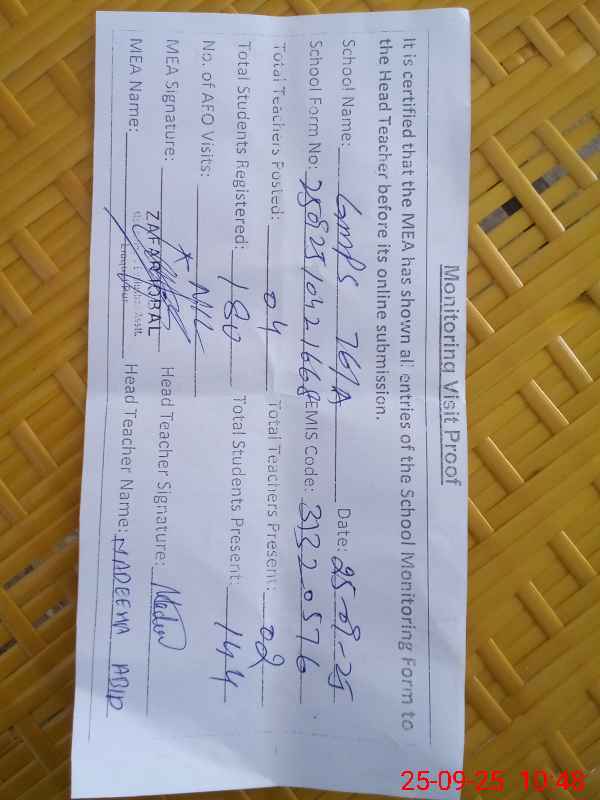 Monitoring Visit Proof
It is certified that the MEA has shown all entries of the School Monitoring Form to
the Head Teacher before its online submission.
School Name: GMPS 76/A Date: 25-09-25
School Form No: EMIS Code: 31320576
Total Teachers Posted: 04 Total Teachers Present: 02
Total Students Registered: 180 Total Students Present: 144
No. of AFO Visits: NIL
MEA Signature: Head Teacher Signature:
ZAFAR IQBAL
MEA Name: Head Teacher Name: NADEEMA ABID
25-09-25 10:48